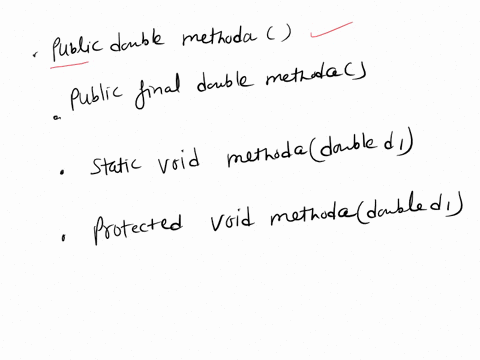 . Public double methoda ()
. Public final double methoda()
. Static void methoda(double d1)
. Protected void methoda(double d1)